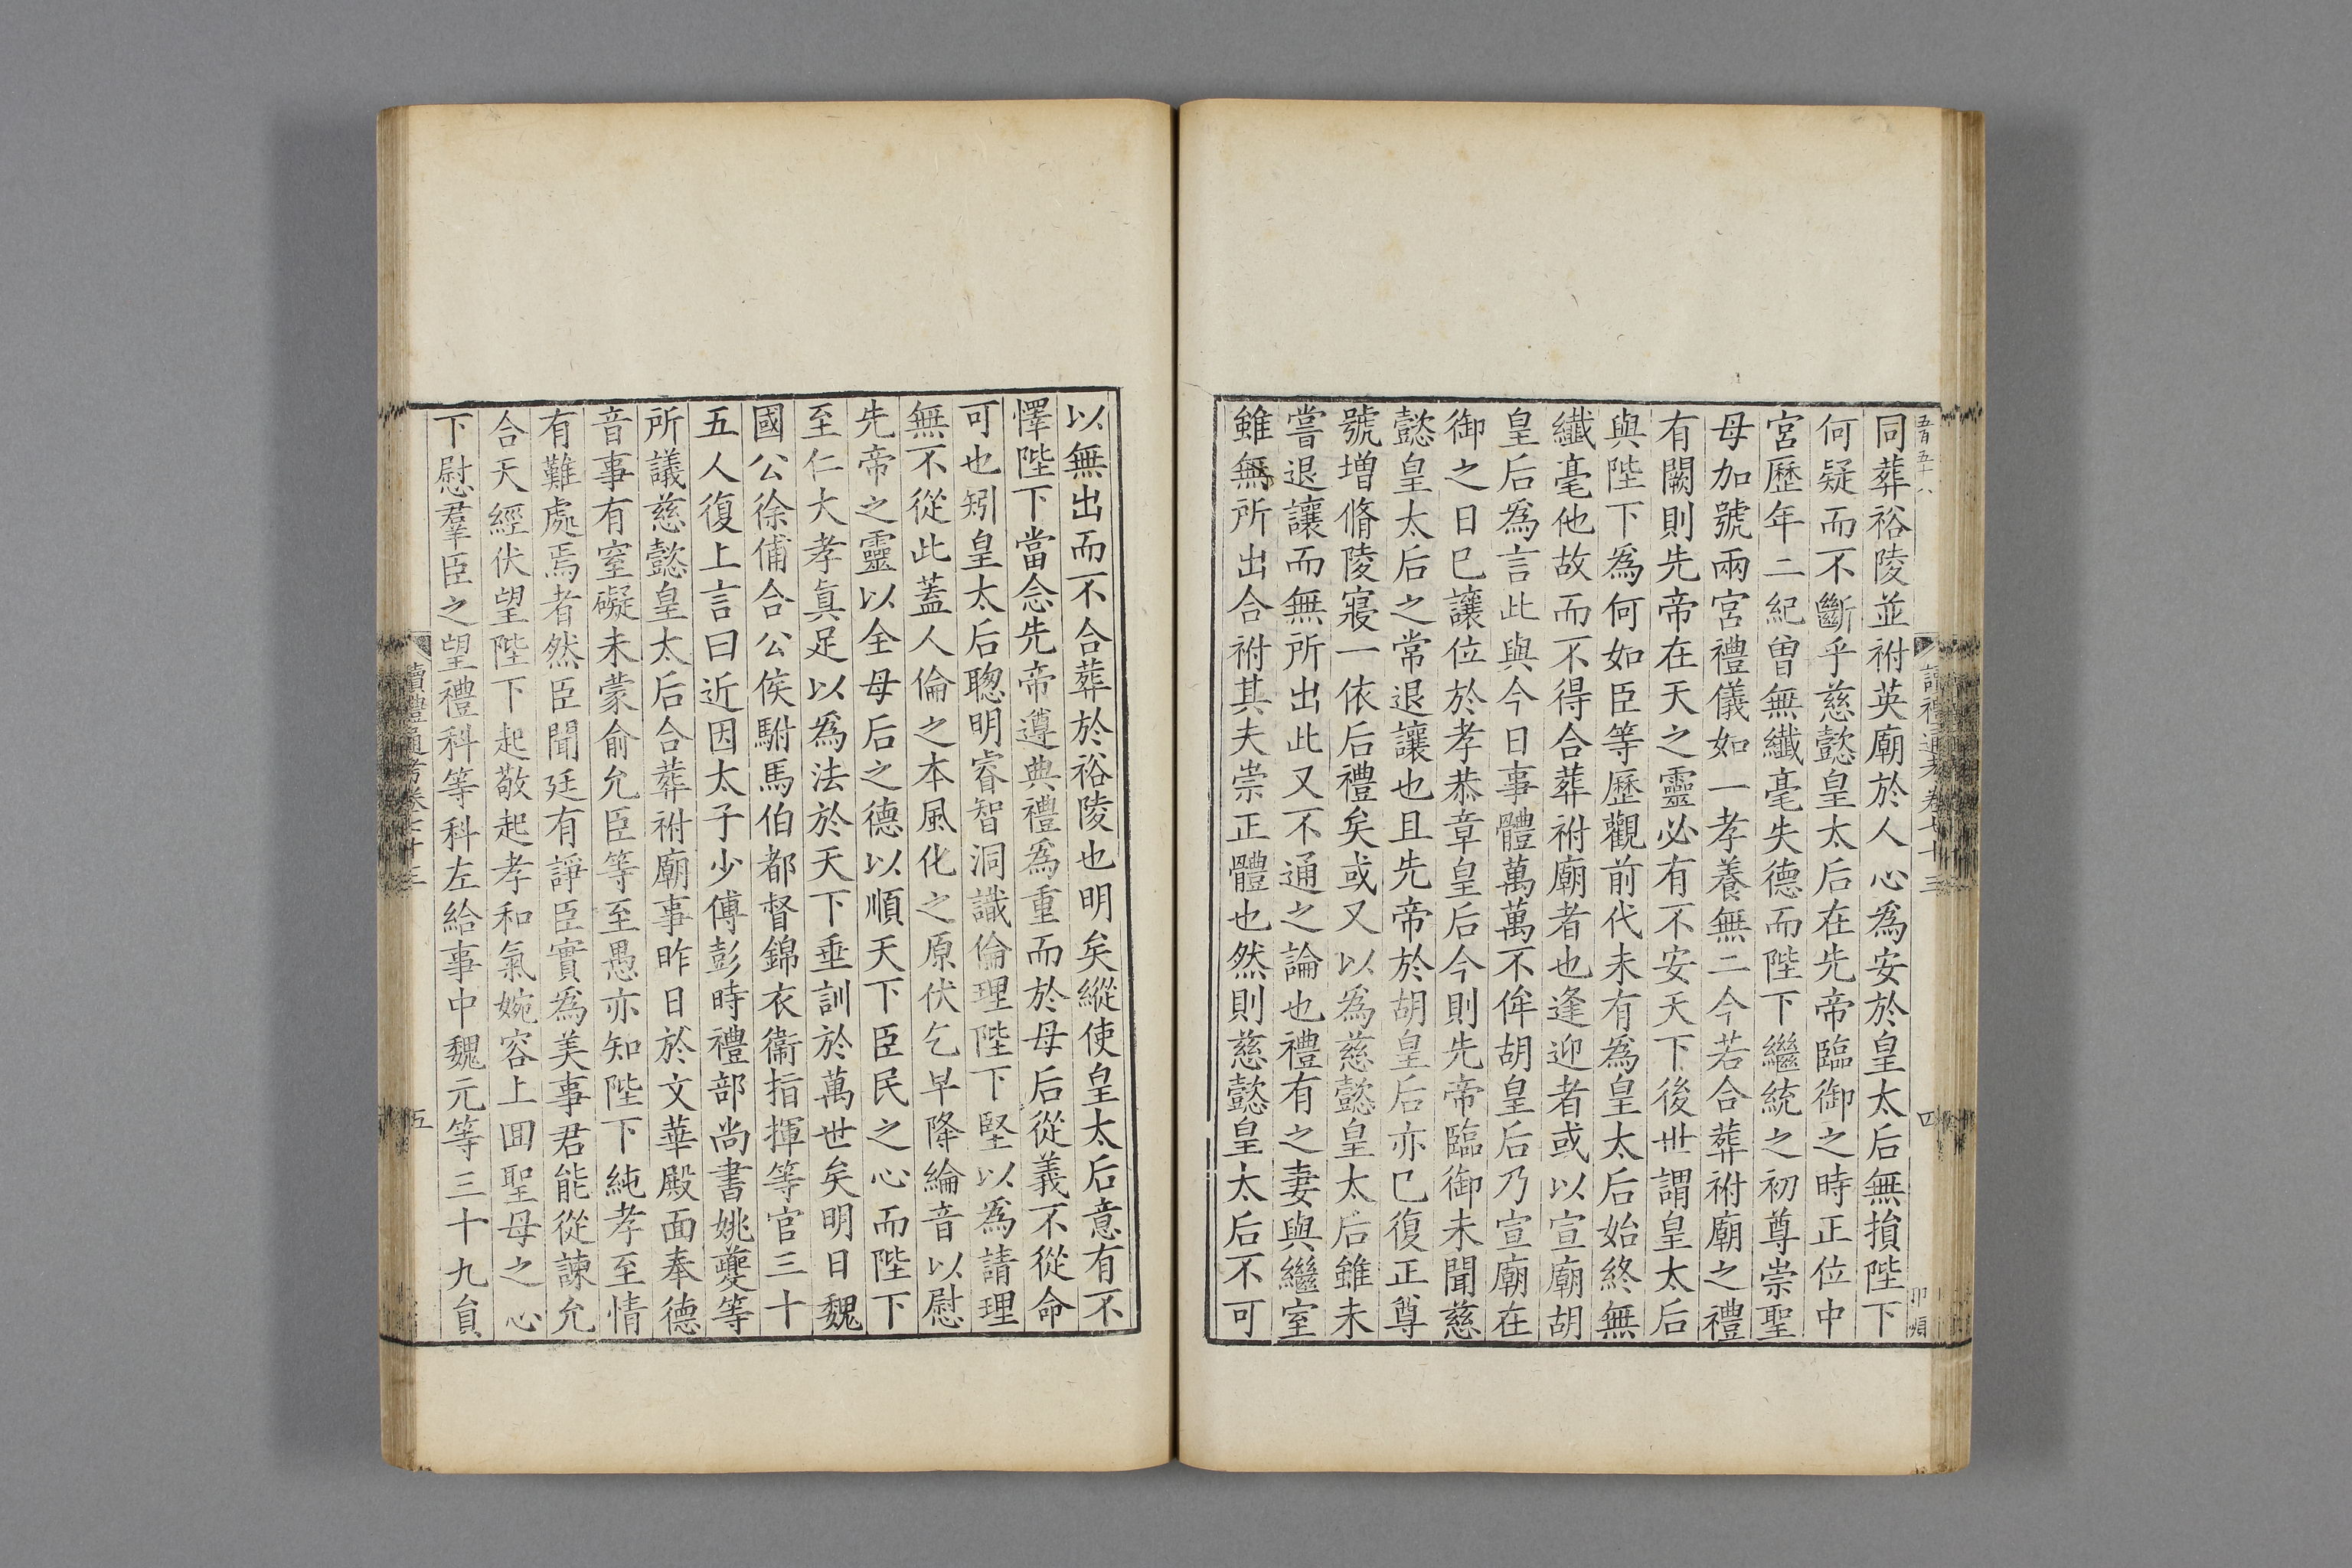 五百五十八
讀禮通考卷七十三
四
同葬裕陵並祔英廟於人心爲安於皇太后無損陛下
何疑而不斷乎慈懿皇太后在先帝臨御之時正位中
宮歷年二紀曾無纖毫失德而陛下繼統之初尊崇聖
母加號兩宮禮儀如一孝養無二今若合葬祔廟之禮
有闕則先帝在天之靈必有不安天下後世謂皇太后
與陛下爲何如臣等歷觀前代未有爲皇太后始終無
纖毫他故而不得合葬祔廟者也逢迎者或以宣廟胡
皇后爲言此與今日事體萬萬不侔胡皇后乃宣廟在
御之日已讓位於孝恭章皇后今則先帝臨御未聞慈
懿皇太后之常退讓也且先帝於胡皇后亦已復正尊
號增脩陵寢一依后禮矣或又以爲慈懿皇太后雖未
嘗退讓而無所出此又不通之論也禮有之妻與繼室
雖無所出合祔其夫崇正體也然則慈懿皇太后不可
以無出而不合葬於裕陵也明矣縱使皇太后意有不
懌陛下當念先帝遵典禮爲重而於母后從義不從命
可也矧皇太后聰明睿智洞識倫理陛下堅以爲請理
無不從此蓋人倫之本風化之原伏乞早降綸音以慰
先帝之靈以全母后之德以順天下臣民之心而陛下
至仁大孝眞足以爲法於天下垂訓於萬世矣明日魏
國公徐俌合公侯駙馬伯都督錦衣衞指揮等官三十
五人復上言曰近因太子少傅彭時禮部尚書姚夔等
所議慈懿皇太后合葬祔廟事昨日於文華殿面奉德
音事有窒礙未蒙俞允臣等至愚亦知陛下純孝至情
有難處焉者然臣聞廷有諍臣實爲美事君能從諫允
合天經伏望陛下起敬起孝和氣婉容上囬聖母之心
下慰羣臣之望禮科等科左給事中魏元等三十九員
讀禮通考卷七十三
五